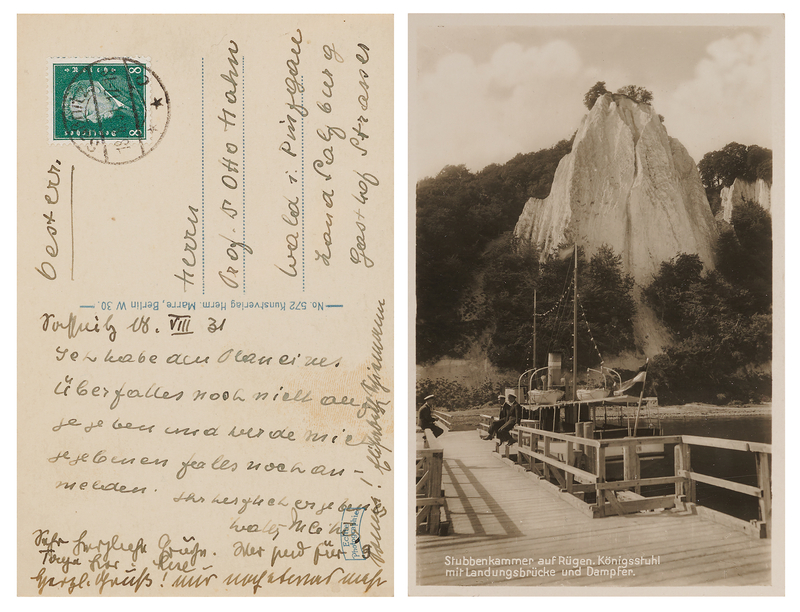 8 8
Deutsches
oesterr.
Herrn
Prof. Dr Otto Hahn
Wald i. Pinzgau
Land Salzburg
Gasthof Strasser
No. 572 Kunstverlag Herm. Marre, Berlin W 30.
Sassnitz 18. VIII 31
Ich habe den Plan eines
Überfalles noch nicht auf-
gegeben und werde mich
gegebenen falles noch an-
melden.
Ihr herzlich ergeben
Sehr herzliche Grüße. Wir sind für
Tage hier
Herzl. Gruß! nur noch etwas mehr
Echte
Photographie
Stubbenkammer auf Rügen. Königsstuhl
mit Landungsbrücke und Dampfer.